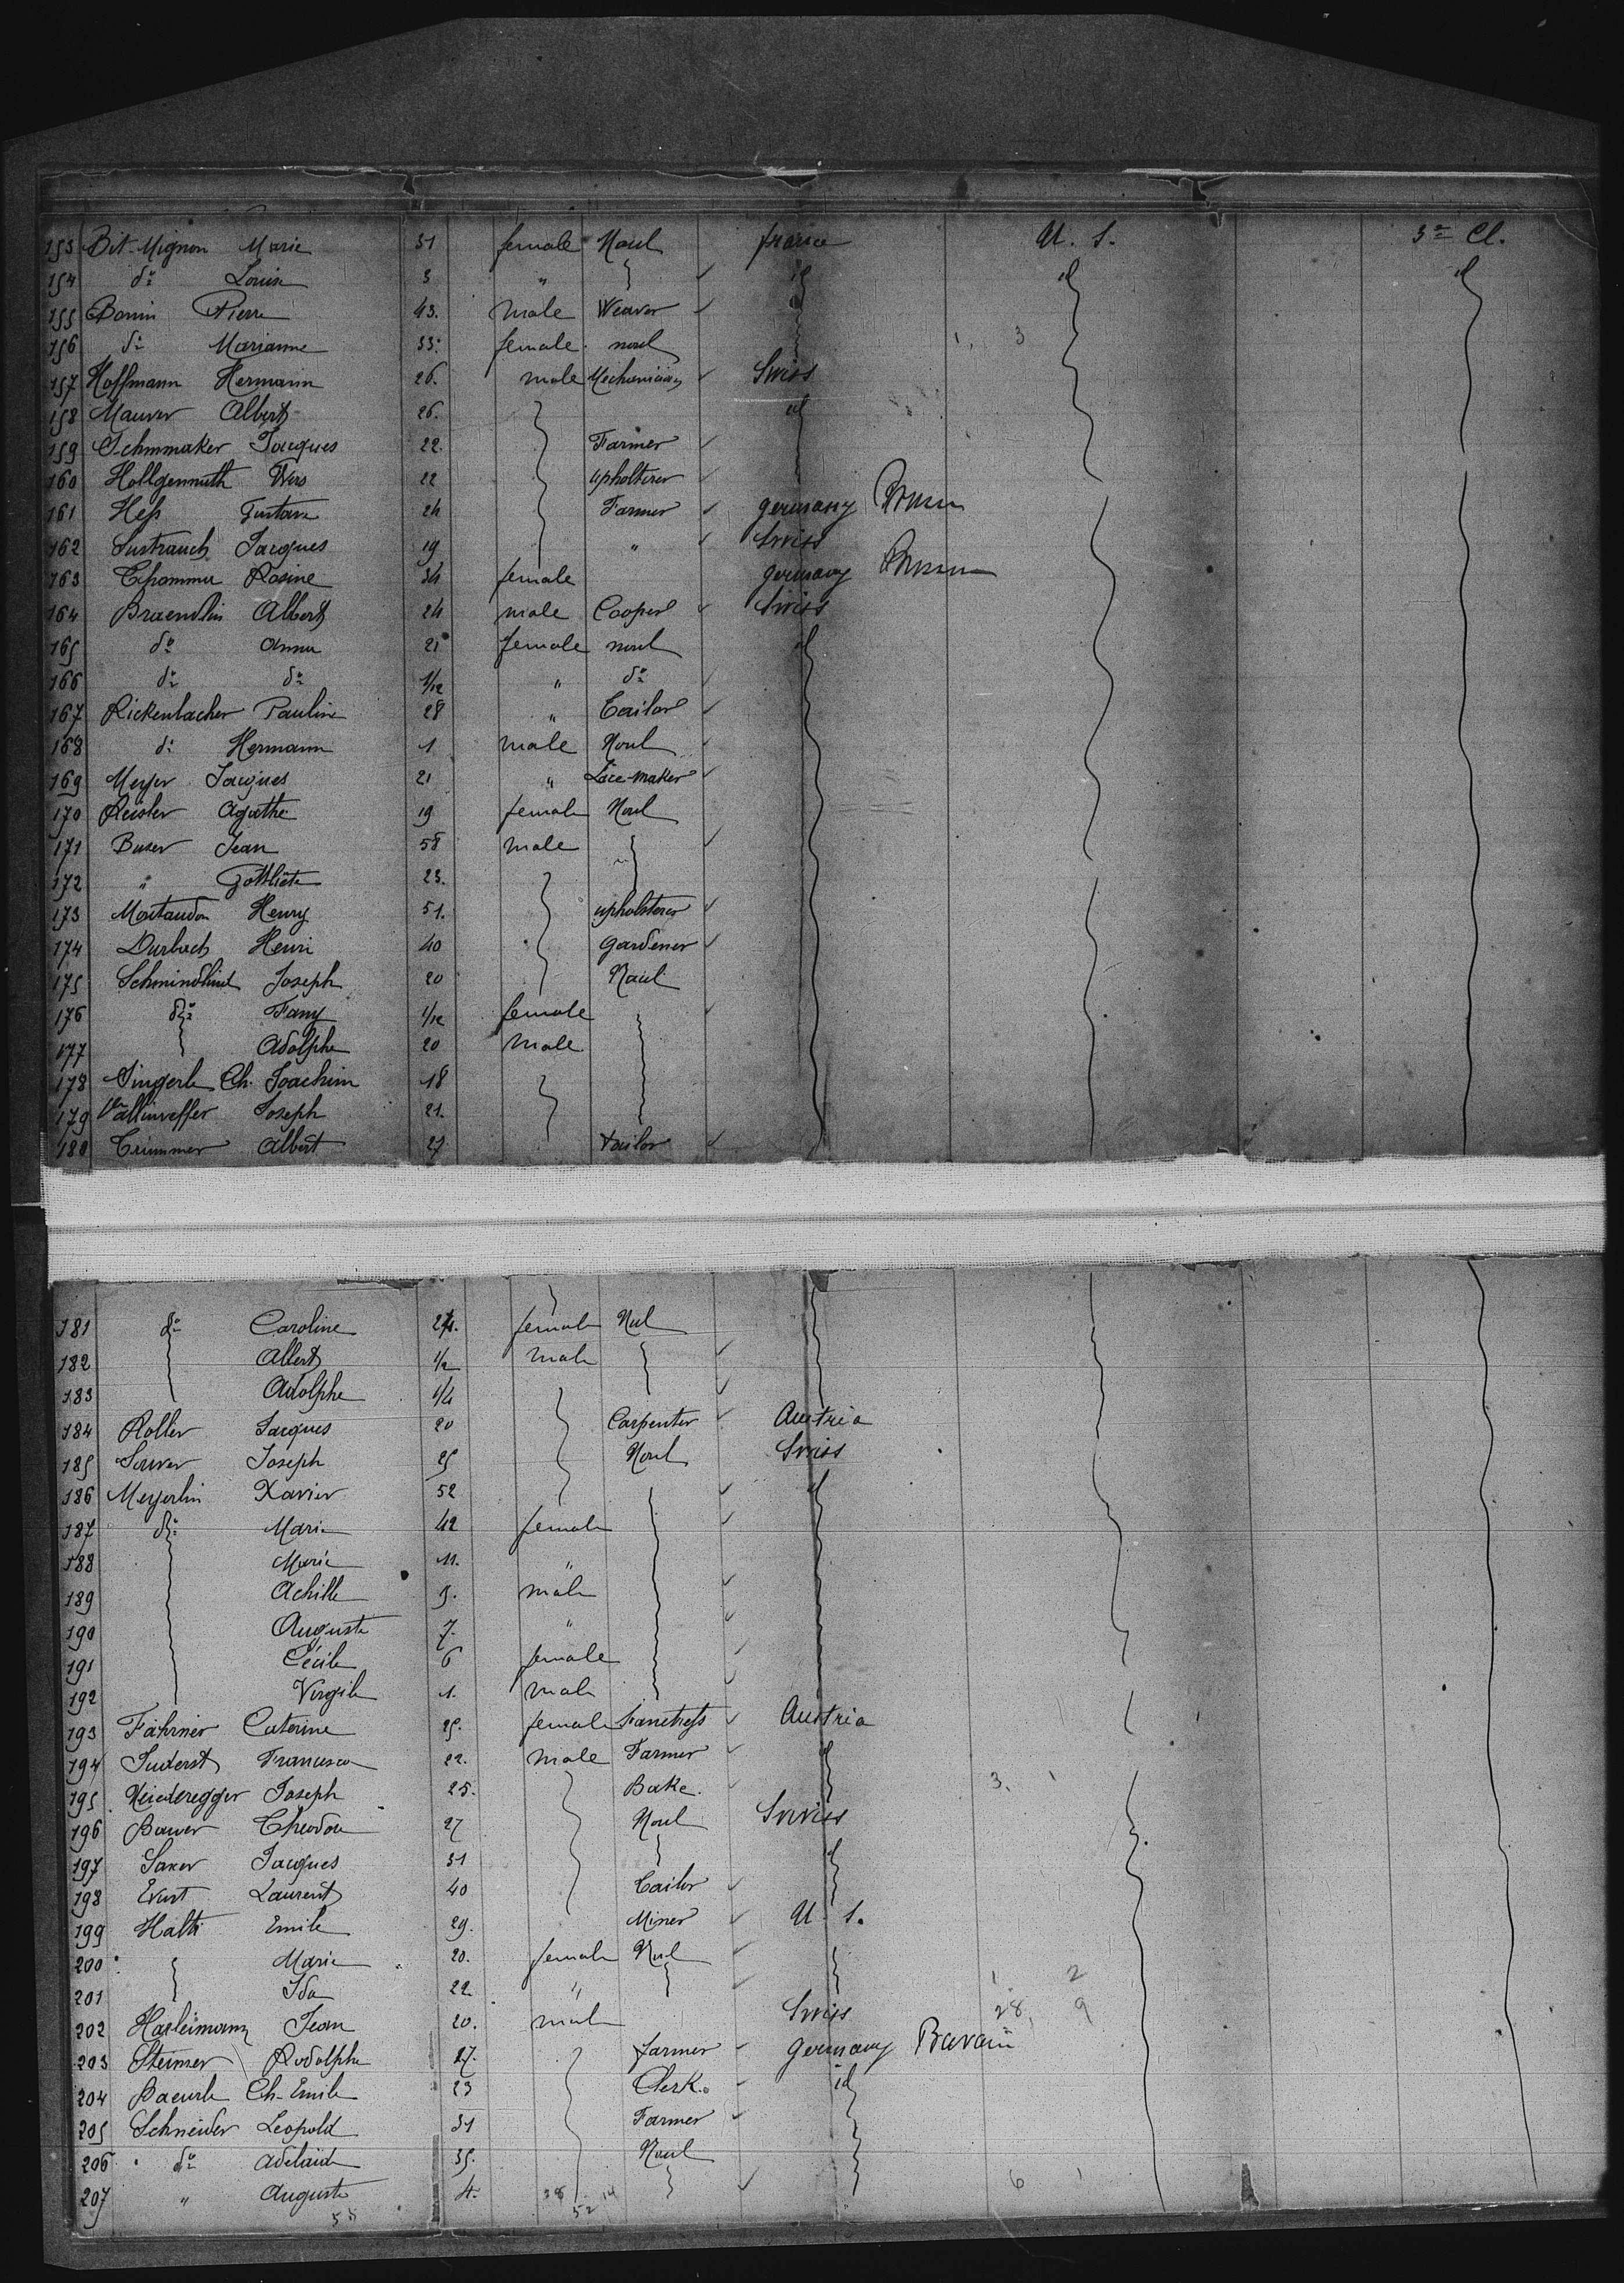 153 Bit-Mignon Marie 31 female Noul france U. S. 3e Cl.
154 do Louise 3 " id id id
155 Bonin Pierre 43. male Weaver
156 do Marianne 33. female noul 1. 3
157 Hoffmann Hermann 26. male Mechanician Swiss
158 Maurer Albert 26. id
159 Schmmaker Jacques 22. Farmer
160 Hollgenmuth 22 upholterer
161 Hess Gustave 24 Farmer germany
162 Sustrauch Jacques 19 " Swiss
163 Rosine 34 female germany
164 Braendlin Albert 24 male Cooper Swiss
165 do Anna 21 female noul id
166 do do 1/12 " do
167 Rickenbacher Pauline 28 " Tailor
168 do Hermann 1 male Noul
169 Meyer Jacques 21 " Lace-maker
170 Reisler Agathe 19 female Noul
171 Buser Jean 58 male
172 " Gottlieb 23.
173 Montandon Henry 51. upholsterer
174 Durbach Henri 40 gardener
175 Schmindlind Joseph 20 Noul
176 do Fany 1/12 female
177 Adolphe 20 male
178 Singerle Ch. Joachim 18
179 Joseph 21.
180 Trimmer Albert 27 tailor
181 do Caroline 24. female Nul
182 Albert 1/2 male
183 Adolphe 1/4
184 Roller Jacques 20 Carpenter Austria
185 Saurer Joseph 25 Noul Swiss
186 Meyerlin Xavier 52 id
187 do Marie 42 female
188 Marie 11. "
189 Achille 9. male
190 Auguste 7. "
191 Cécile 6 female
192 Virgile 1. male
193 Fahrner Caterine 25. female Austria
194 Suderst Francisco 22. male Farmer id
195 Neideregger Joseph 25. Bake. 3. 1
196 Bauer Theodore 27 Noul Swiss
197 Saxer Jacques 31 id
198 Evert Laurent 40 Tailor
199 Halti Emile 29. Miner U. S.
200 Marie 20. female Nul
201 Ida 22. " 1 2
202 Hasleimann Jean 20. male Swiss 28. 9
203 Steimer Rodolphe 27. farmer germany Bavaria
204 Baeurle Ch-Emile 23 Clerk. id
205 Schneider Leopold 31 Farmer
206 do Adelaide 35. Noul
207 " Auguste 4. 6 1